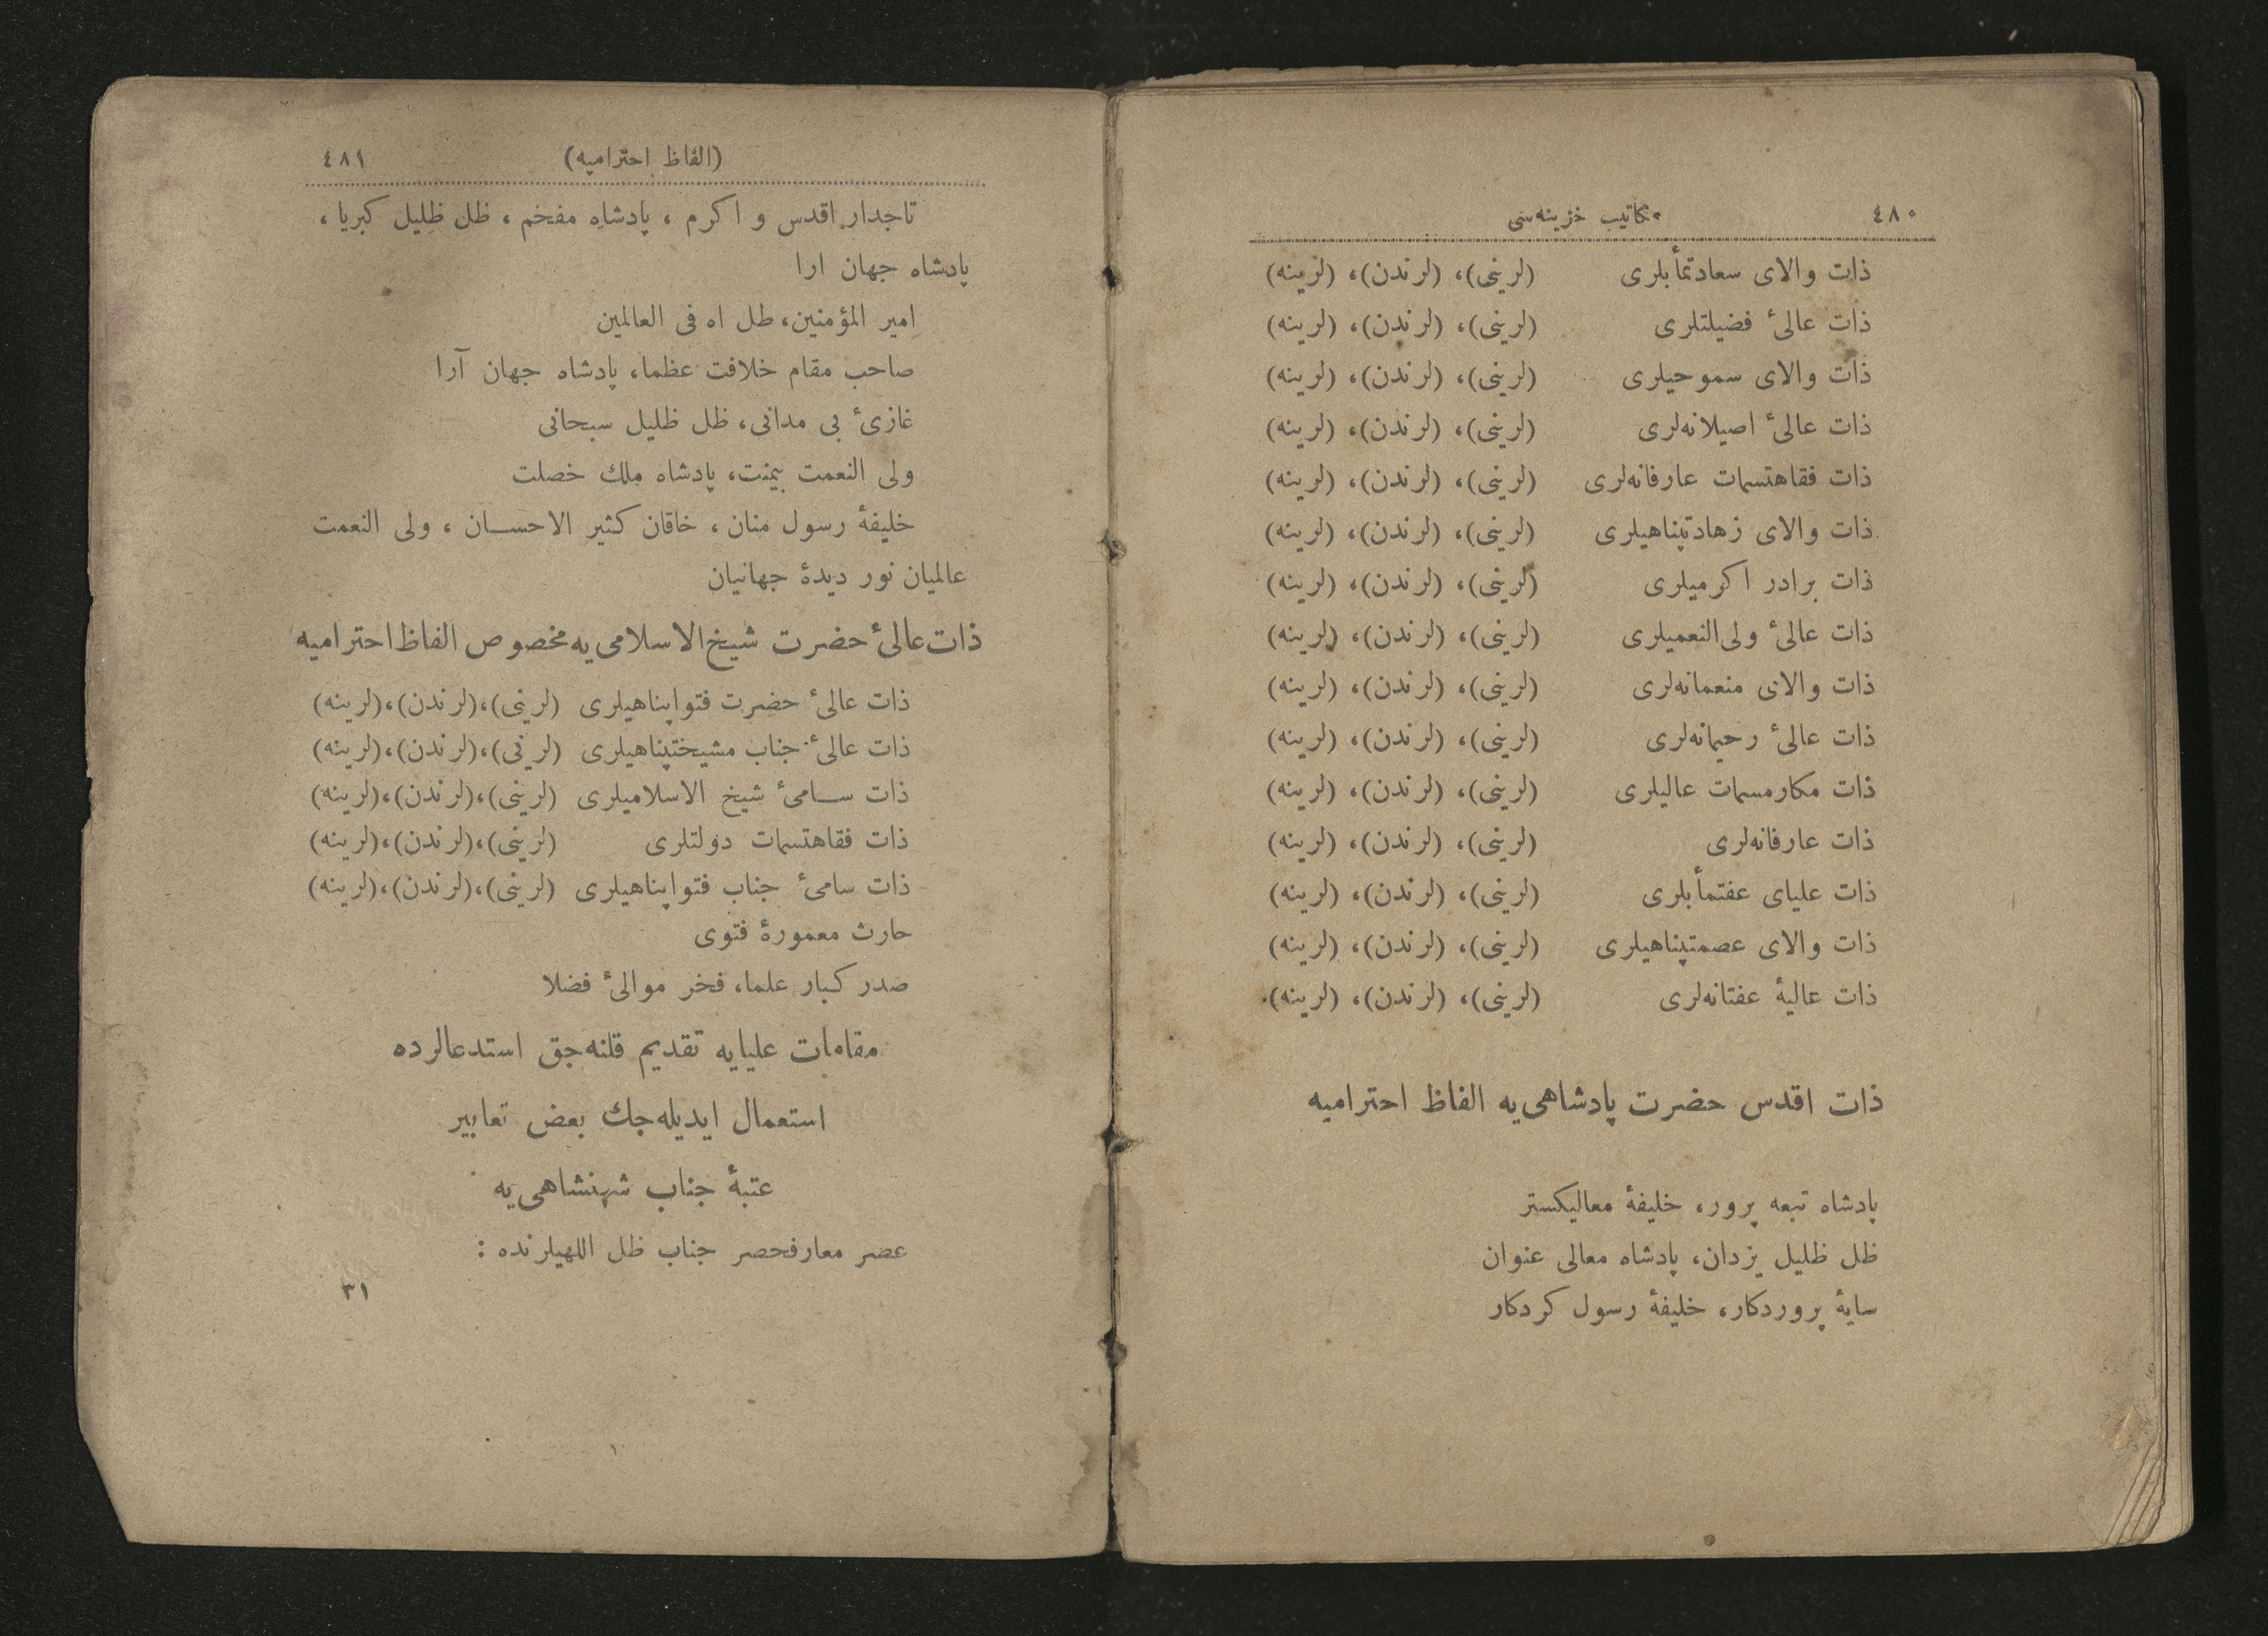 ٤٨٠ مكاتيب خزينه‌سى
ذات والاى سعادتمأبلرى (لرينى)، (لرندن)، (لرينه)
ذات عالىٔ فضيلتلرى (لرينى)، (لرندن)، (لرينه)
ذات والاى سموحيلرى (لرينى)، (لرندن)، (لرينه)
ذات عالىٔ اصيلانه‌لرى (لرينى)، (لرندن)، (لرينه)
ذات فقاهتسمات عارفانه‌لرى (لرينى)، (لرندن)، (لرينه)
ذات والاى زهادتپناهيلرى (لرينى)، (لرندن)، (لرينه)
ذات برادر اكرميلرى (لرينى)، (لرندن)، (لرينه)
ذات عالىٔ ولى‌النعميلرى (لرينى)، (لرندن)، (لرينه)
ذات والاى منعمانه‌لرى (لرينى)، (لرندن)، (لرينه)
ذات عالىٔ رحيمانه‌لرى (لرينى)، (لرندن)، (لرينه)
ذات مكارمسمات عاليلرى (لرينى)، (لرندن)، (لرينه)
ذات عارفانه‌لرى (لرينى)، (لرندن)، (لرينه)
ذات علياى عفتمأبلرى (لرينى)، (لرندن)، (لرينه)
ذات والاى عصمتپناهيلرى (لرينى)، (لرندن)، (لرينه)
ذات عاليهٔ عفتانه‌لرى (لرينى)، (لرندن)، (لرينه)
ذات اقدس حضرت پادشاهى‌يه الفاظ احتراميه
پادشاه تبعه پرور، خليفهٔ معاليكستر
ظل ظليل يزدان، پادشاه معالى عنوان
سايهٔ پروردكار، خليفهٔ رسول كردكار
(الفاظ احتراميه) ٤٨١
تاجدار اقدس و اكرم ، پادشاه مفخم ، ظل ظليل كبريا ،
پادشاه جهان ارا
امير المؤمنين، طل اه فى العالمين
صاحب مقام خلافت عظما، پادشاه جهان آرا
غازىٔ بى مدانى، ظل ظليل سبحانى
ولى النعمت بيمنت، پادشاه ملك خصلت
خليفهٔ رسول منان ، خاقان كثير الاحسـان ، ولى النعمت
عالميان نور ديدهٔ جهانيان
ذات عالىٔ حضرت شيخ‌الاسلامى‌يه مخصوص الفاظ احتراميه
ذات عالىٔ حضرت فتواپناهيلرى (لرينى)،(لرندن)،(لرينه)
ذات عالىٔ جناب مشيختپناهيلرى (لرينى)،(لرندن)،(لرينه)
ذات سـامىٔ شيخ الاسلاميلرى (لرينى)،(لرندن)،(لرينه)
ذات فقاهتسمات دولتلرى (لرينى)،(لرندن)،(لرينه)
ذات سامىٔ جناب فتواپناهيلرى (لرينى)،(لرندن)،(لرينه)
حارث معمورهٔ فتوى
صدر كبار علما، فخر موالىٔ فضلا
مقامات عليايه تقديم قلنه‌جق استدعالرده
استعمال ايديله‌جك بعض تعابير
عتبهٔ جناب شهنشاهى‌يه
عصر معارفحصر جناب ظل اللهيلرنده :
٣١